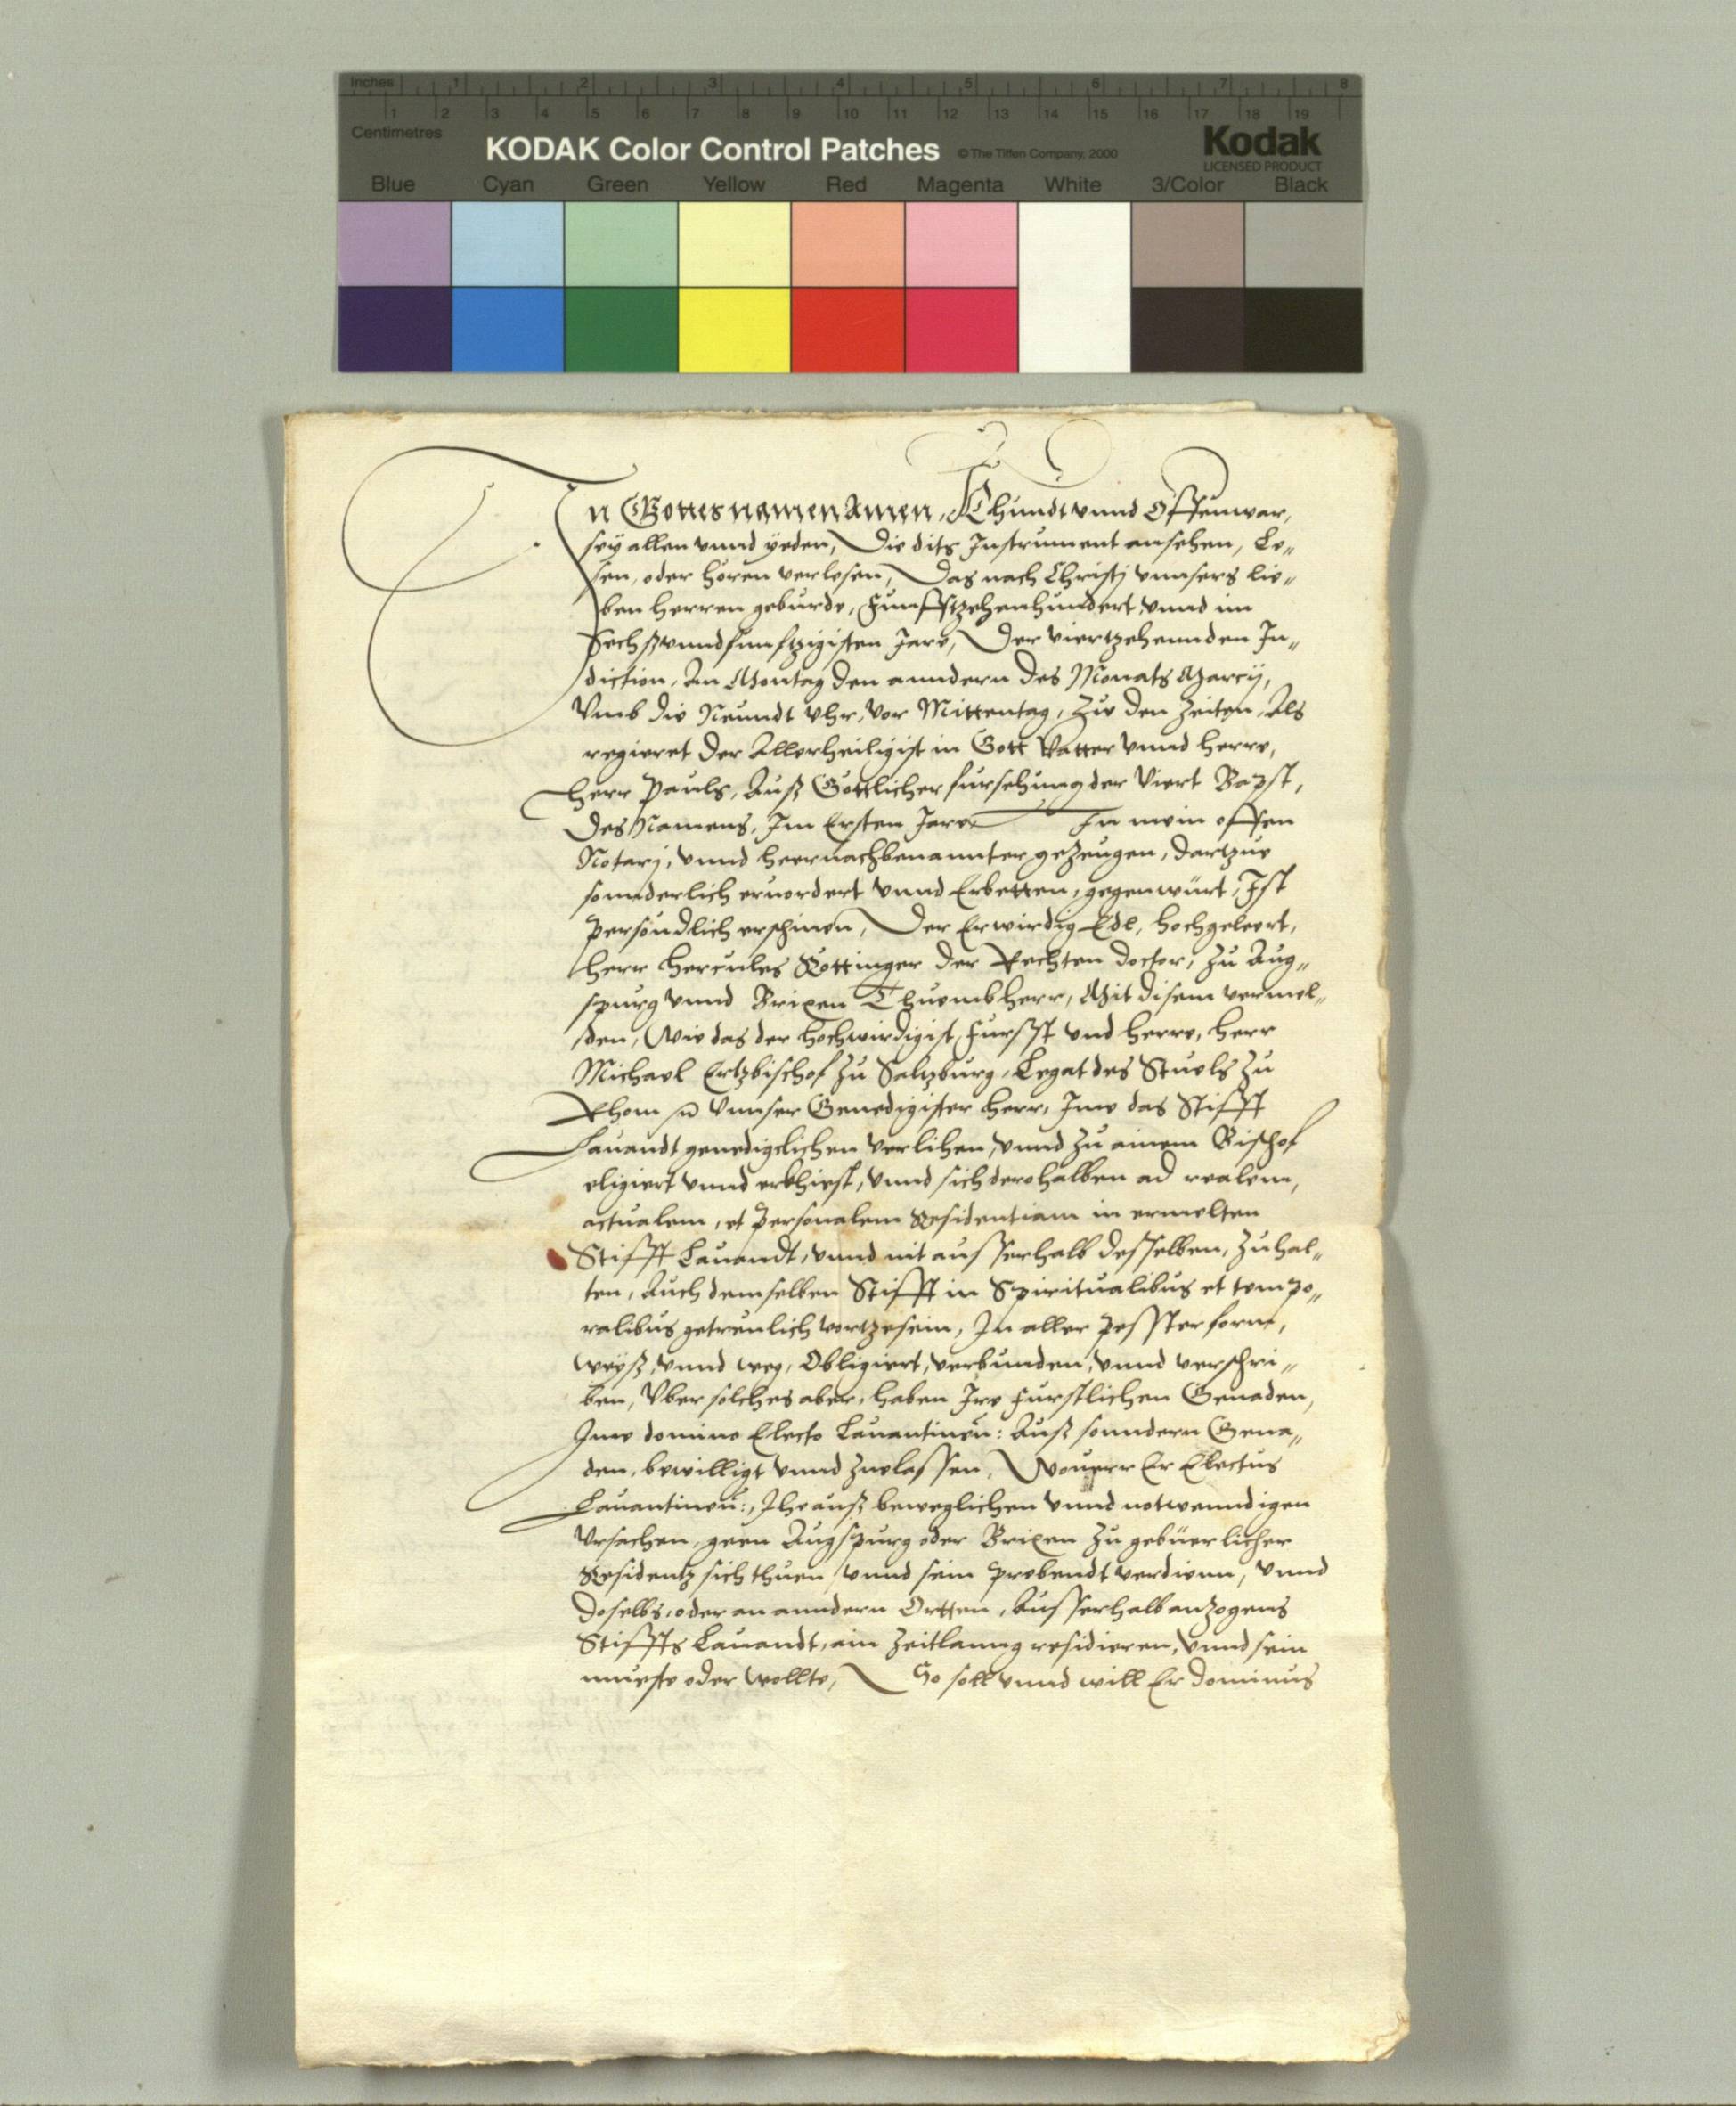 Inches 1 2 3 4 5 6 7 8
1 2 3 4 5 6 7 8 9 10 11 12 13 14 15 16 17 18 19
Centimetres
KODAK Color Control Patches © The Tiffen Company, 2000 Kodak
LICENSED PRODUCT
Blue Cyan Green Yellow Red Magenta White 3/Color Black
In Gottes namen Amen, Khundt vnnd Offenwar,
sey allen vnnd yeden, Die dits Instrument ansehen, Le„
sen, oder hören verlesen, Das nach Christj vnnsers lie„
ben herren geburde, Funfftzehenhundert vnnd im
Sechßvnndfunftzigisten Jare, Der viertzehennden In„
diction, Am Montag den anndern des Monats Marcij,
Vmb die Neundt Vhr, vor Mittentag, Zue den Zeiten, Als
regieret der Allerheiligist in Gott Vatter vnnd herre,
herr Pauls, Auß Göttlicher fursehung der Viert Bapst,
des Namens, Im Ersten Jare In mein offen
Notarj, vnnd hernachbenannter gezeugen, dartzue
sonnderlich eruordert vnnd Erbetten, gegenwürt, Ist
Persöndlich erschinen, Der Erwirdig Edl, hochgeleert,
herr Hercules Röttinger der Rechten doctor, Zu Aug„
spurg vnnd Brixen Thuembherr, Mit disem vermel„
den, Wie das der hochwirdigist Furst vnd herre, herr
Michael Ertzbischof Zu Saltzburg, Legat des Stuels Zu
Rhom vnnser Genedigister herr, Ime das Stifft
Lauandt genedigclichen verlihen, vnnd Zu ainem Bischof
eligiert vnnd erkhiest, vnnd sich derohalben ad realem,
actualem, et Personalem Residentiam in ermelten
Stifft Lauandt, vnnd nit ausserhalb desselben, Zuhal„
ten, Auch demselben Stifft in Spiritualibus et tempo„
ralibus getreulich vortzesein, In aller Pesster form,
weyß, vnnd weg, Obligiert, verbunden, vnnd verschri„
ben, Vber solches aber, haben Ire Furstlichen Genaden,
Ime domino Electo Lauantinen: Auß sonndern Gena„
den, bewilligt vnnd zuelassen, Wouerr Er Electus
Lauantinen:, Ihe auß beweglichen vnnd notwenndigen
Vrsachen, geen Augspurg oder Brixen Zu gebüerlicher
Residentz sich thuen, vnnd sein Prebendt verdienn, vnnd
doselbs, oder an anndern Ortten, Ausserhalb anzogens
Stiffts Lauandt, ain Zeitlanng residieren, vnnd sein
mueste oder wollte, So soll vnnd will Er dominus